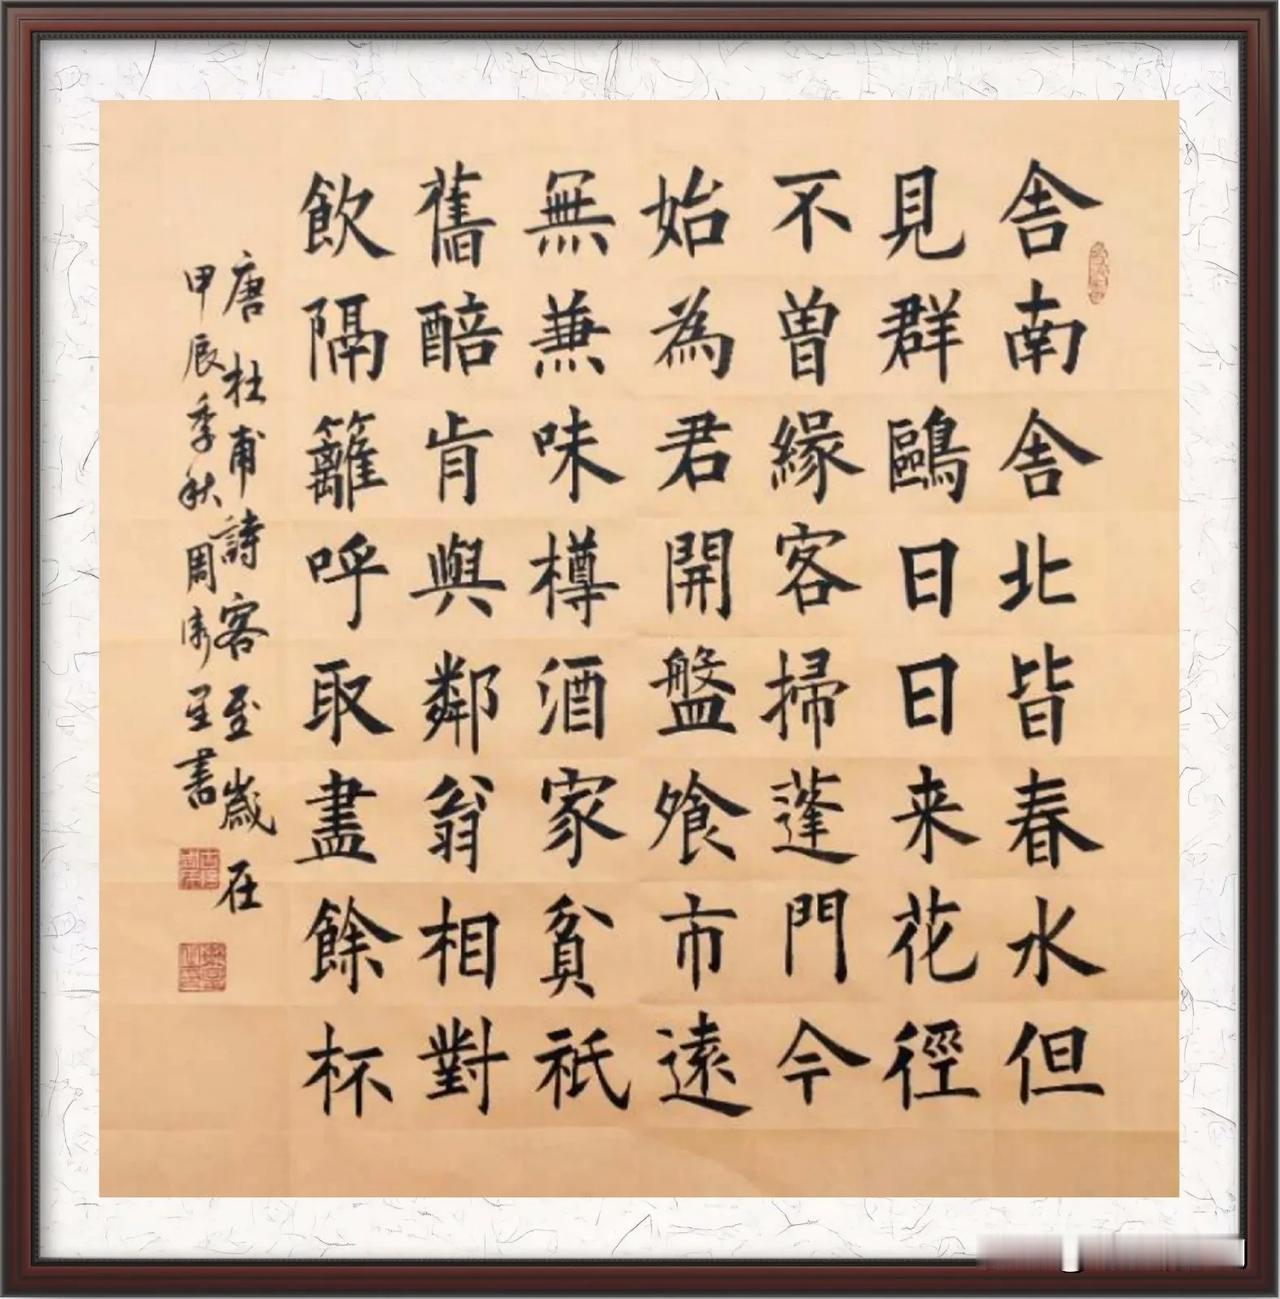 舎南舎北皆春水但
見群鷗日日来花徑
不曽緣客掃蓬門今
始為君開盤飧市遠
無兼味樽酒家貧祇
舊醅肯與鄰翁相對
飲隔籬呼取盡餘杯
唐杜甫詩客至歲在
甲辰季秋周衛星書